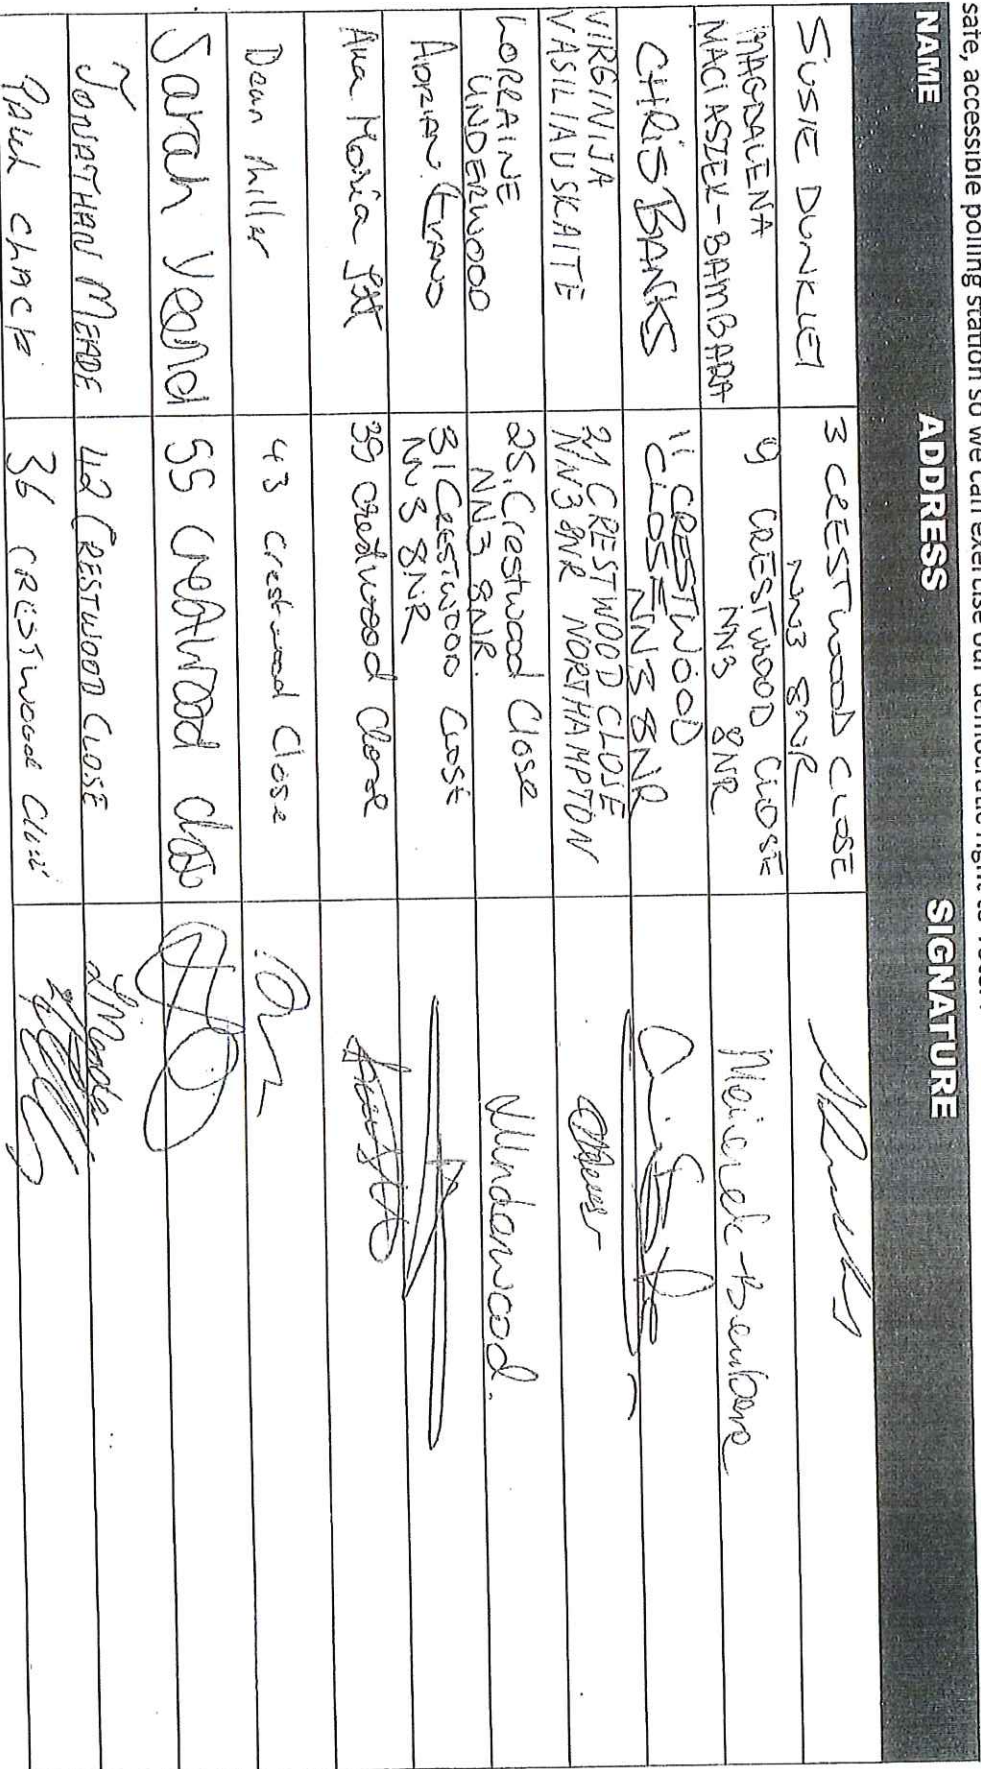 safe, accessible polling station so we can exercise our democratic right to vote.
NAME ADDRESS SIGNATURE
SUSIE DUNKLEY 3 CRESTWOOD CLOSE
NN3 8NR
MAGDALENA
MACIASZEK-BAMBARA 9 CRESTWOOD CLOSE
NN3 8NR
CHRIS BANKS 11 CRESTWOOD
CLOSE NN3 8NR
VIRGINIJA
VASILIAUSKAITE 21 CRESTWOOD CLOSE
NN3 8NR NORTHAMPTON
LORRAINE
UNDERWOOD 25, Crestwood Close
NN3 8NR. Underwood.
ADRIAN 31 CRESTWOOD CLOSE
NN3 8NR
Ana Maria 39 crestwood Close
Dean Miller 43 crestwood Close
Sarah 55 crestwood close
JONATHAN MEADE 42 CRESTWOOD CLOSE Meade
Paul 36 CRESTWOOD Close